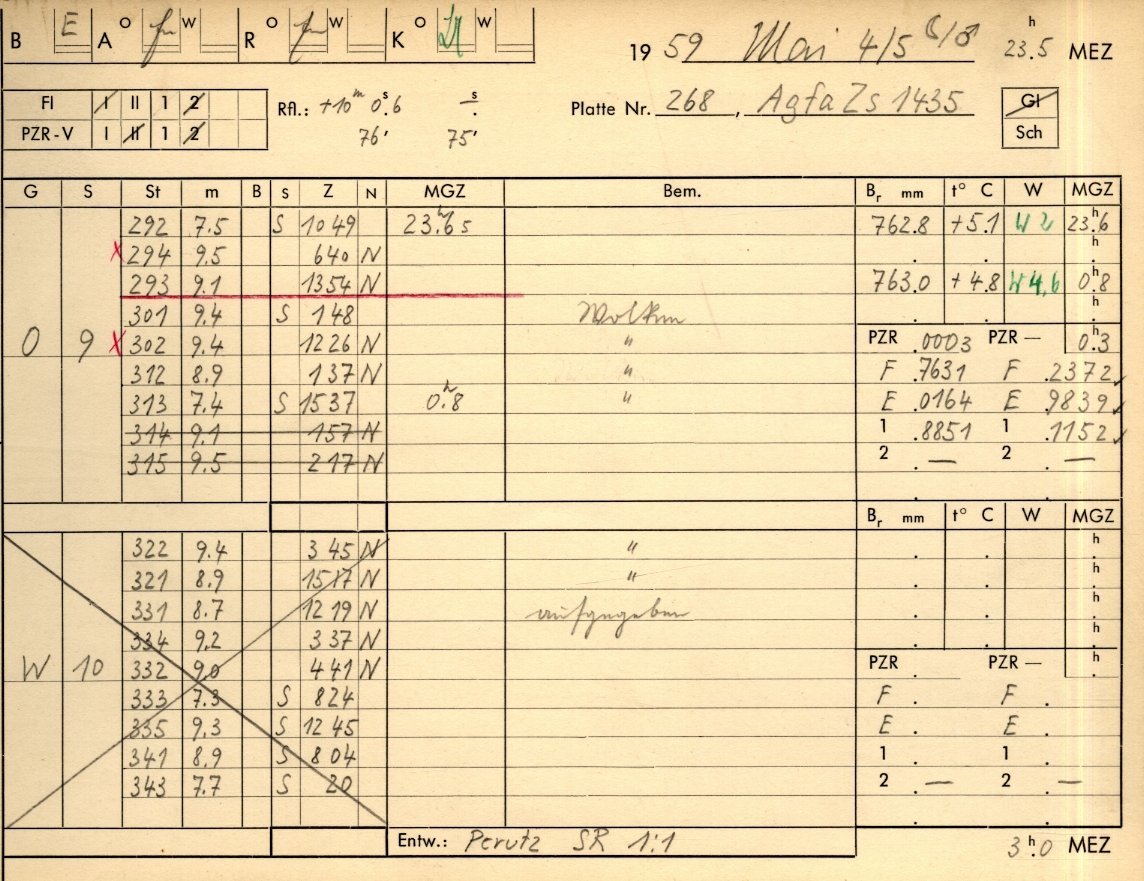 B E A O W R O W K O W
19 59 Mai 4/5 ☾/♂ 23.5 h MEZ
Fl I II 1 2
PZR-V I II 1 2
Rfl.: +10 m 0 s.6 — s
76' 75'
Platte Nr. 268, Agfa Zs 1435
Gl
Sch
G S St m B S Z N MGZ Bem. Br mm t° C W MGZ
292 7.5 S 1049 23.h65 762.8 +5.1 W 2 23.h6
x 294 9.5 640 N . . h.
293 9.1 1354 N 763.0 +4.8 W 4,6 0.h8
301 9.4 S 148 Wolken . . h.
O 9 x 302 9.4 1226 N " PZR .0003 PZR — 0.h3
312 8.9 137 N " F .7631 F .2372 ✓
313 7.4 S 1537 0.h8 " E .0164 E .9839 ✓
314 9.1 157 N 1 .8851 1 .1152 ✓
315 9.5 217 N 2 . — 2 . —
Br mm t° C W MGZ
322 9.4 345 N " . . h.
321 8.9 1517 N " . . h.
331 8.7 1219 N aufgegeben . . h.
334 9.2 337 N . . h.
W 10 332 9.0 441 N PZR . PZR — h.
333 7.3 S 824 F . F .
335 9.3 S 1245 E . E .
341 8.9 S 804 1 . 1 .
343 7.7 S 20 2 . — 2 . —
Entw.: Perutz SR 1:1 3 h.0 MEZ